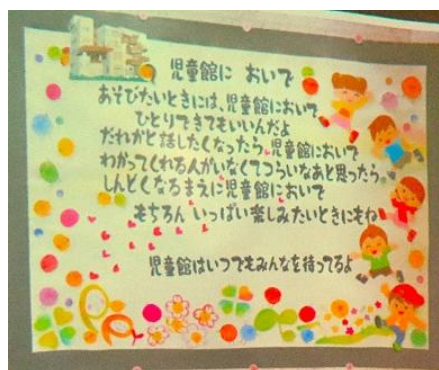 児童館に おいで
あそびたいときには、児童館において
ひとりできてもいいんだよ
だれかと話したくなったら、児童館において
わかってくれる人がいなくてつらいなあと思ったら、
しんどくなるまえに児童館において
もちろん いっぱい楽しみたいときにもね
児童館はいつでもみんなを待ってるよ